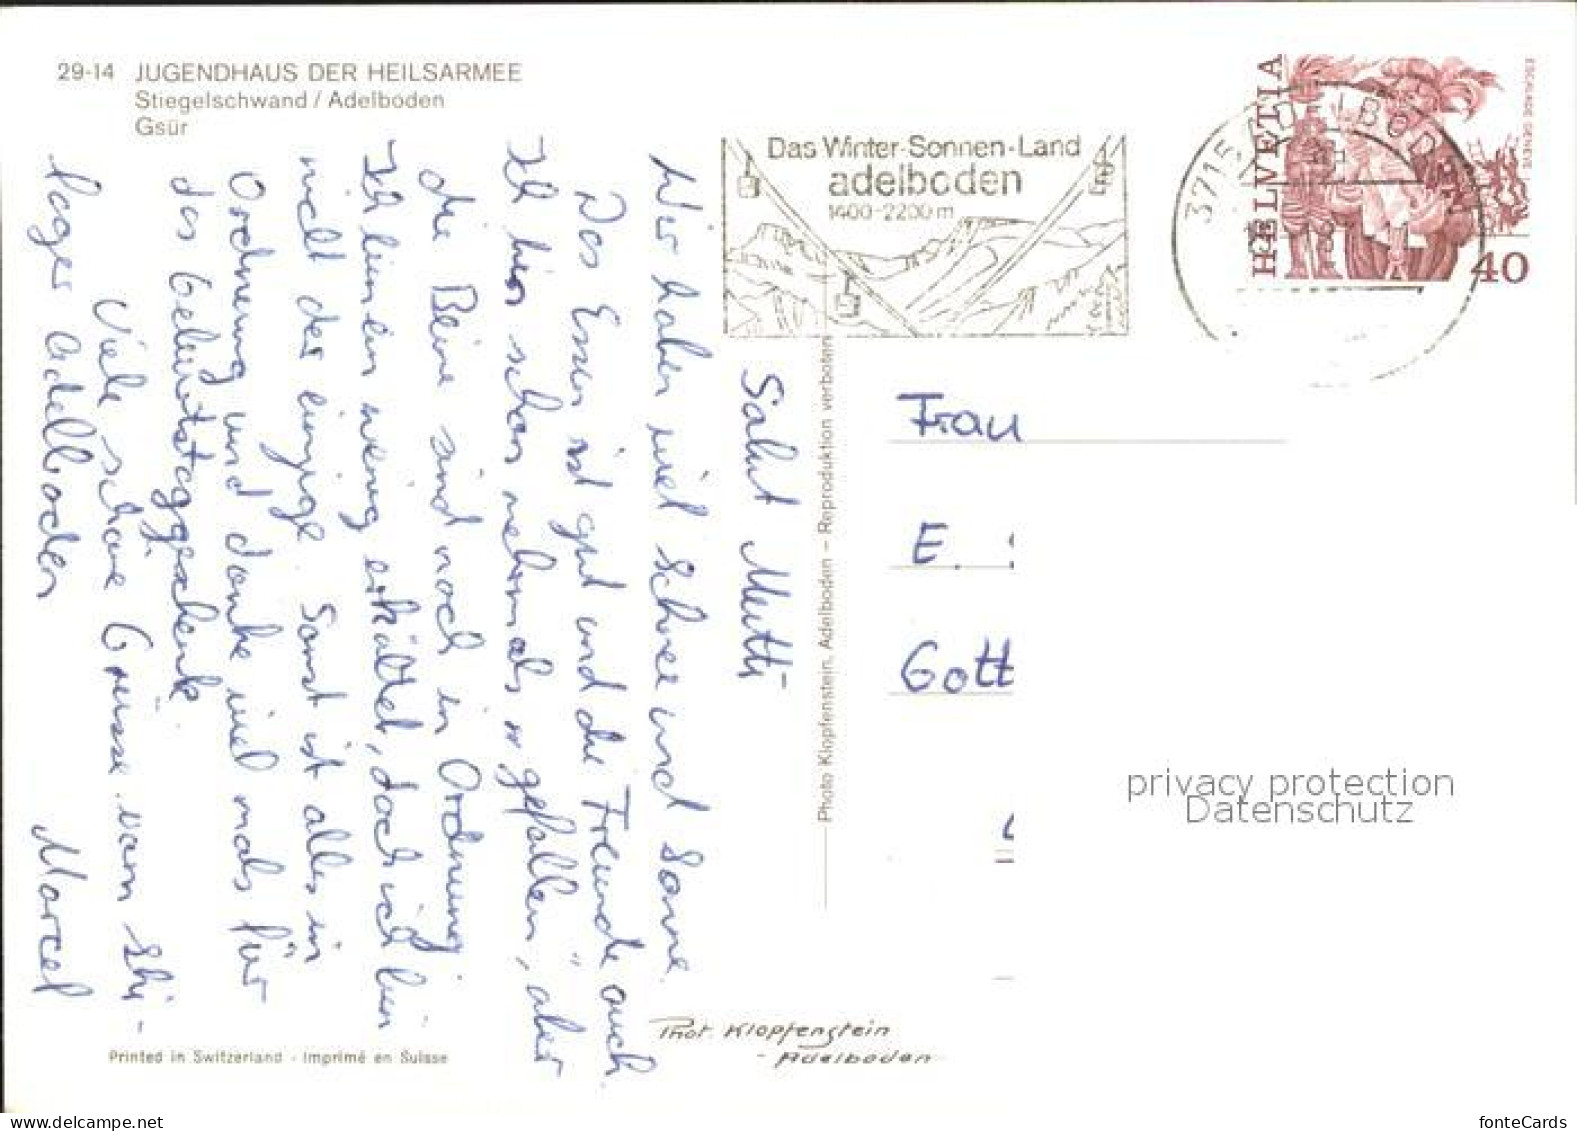 29-14 JUGENDHAUS DER HEILSARMEE
Stiegelschwand / Adelboden
Gsür
Das Winter-Sonnen-Land
adelboden
1400-2200 m
3715 ADELBODEN
HELVETIA
40
ESCALADE GENÈVE
Salut Mutti
Wir haben viel Schnee und Sonne.
Das Essen ist gut und die Freunde auch.
Ich bin schon mehrmals "gefallen", aber
die Beine sind noch in Ordnung.
Ich bin ein wenig erkältet, doch ich bin
nicht der einzige. Sonst ist alles in
Ordnung und danke vielmals für
das Geburtstaggeschenk.
Viele schöne Grüsse vom Ski-
lager Adelboden
Marcel
Photo Klopfenstein, Adelboden – Reproduktion verboten
Frau
E.
Gott
privacy protection
Datenschutz
Phot. Klopfenstein
- Adelboden
Printed in Switzerland - Imprimé en Suisse
www.delcampe.net
fonteCards